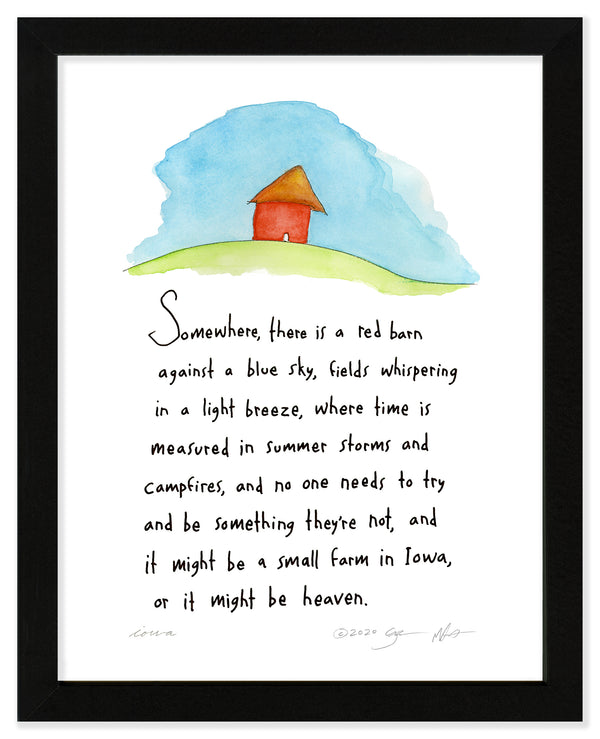 Somewhere, there is a red barn
against a blue sky, fields whispering
in a light breeze, where time is
measured in summer storms and
campfires, and no one needs to try
and be something they're not, and
it might be a small farm in Iowa,
or it might be heaven.
iowa ©2020